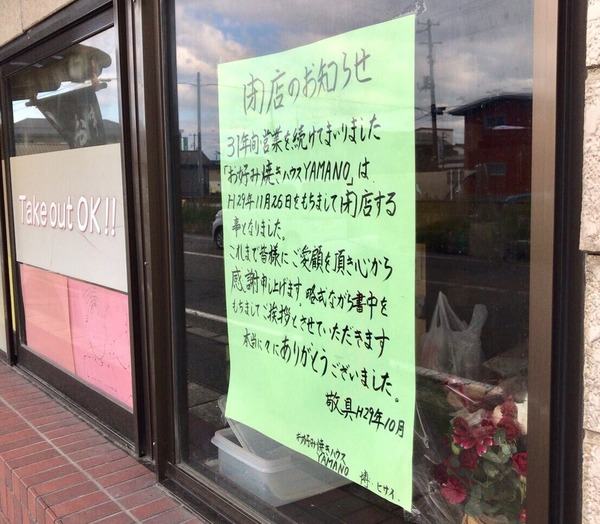 Take out OK!!
閉店のお知らせ
31年間営業を続けてまいりました
「お好み焼きハウスYAMANO」は
H29年11月26日をもちまして閉店する
事となりました。
これまで皆様にご愛顧を頂き心から
感謝申し上げます 略式ながら書中を
もちましてご挨拶とさせていただきます
本当に々にありがとうございました。
敬具 H29年10月
お好み焼きハウス
YAMANO
博、ヒサイ.